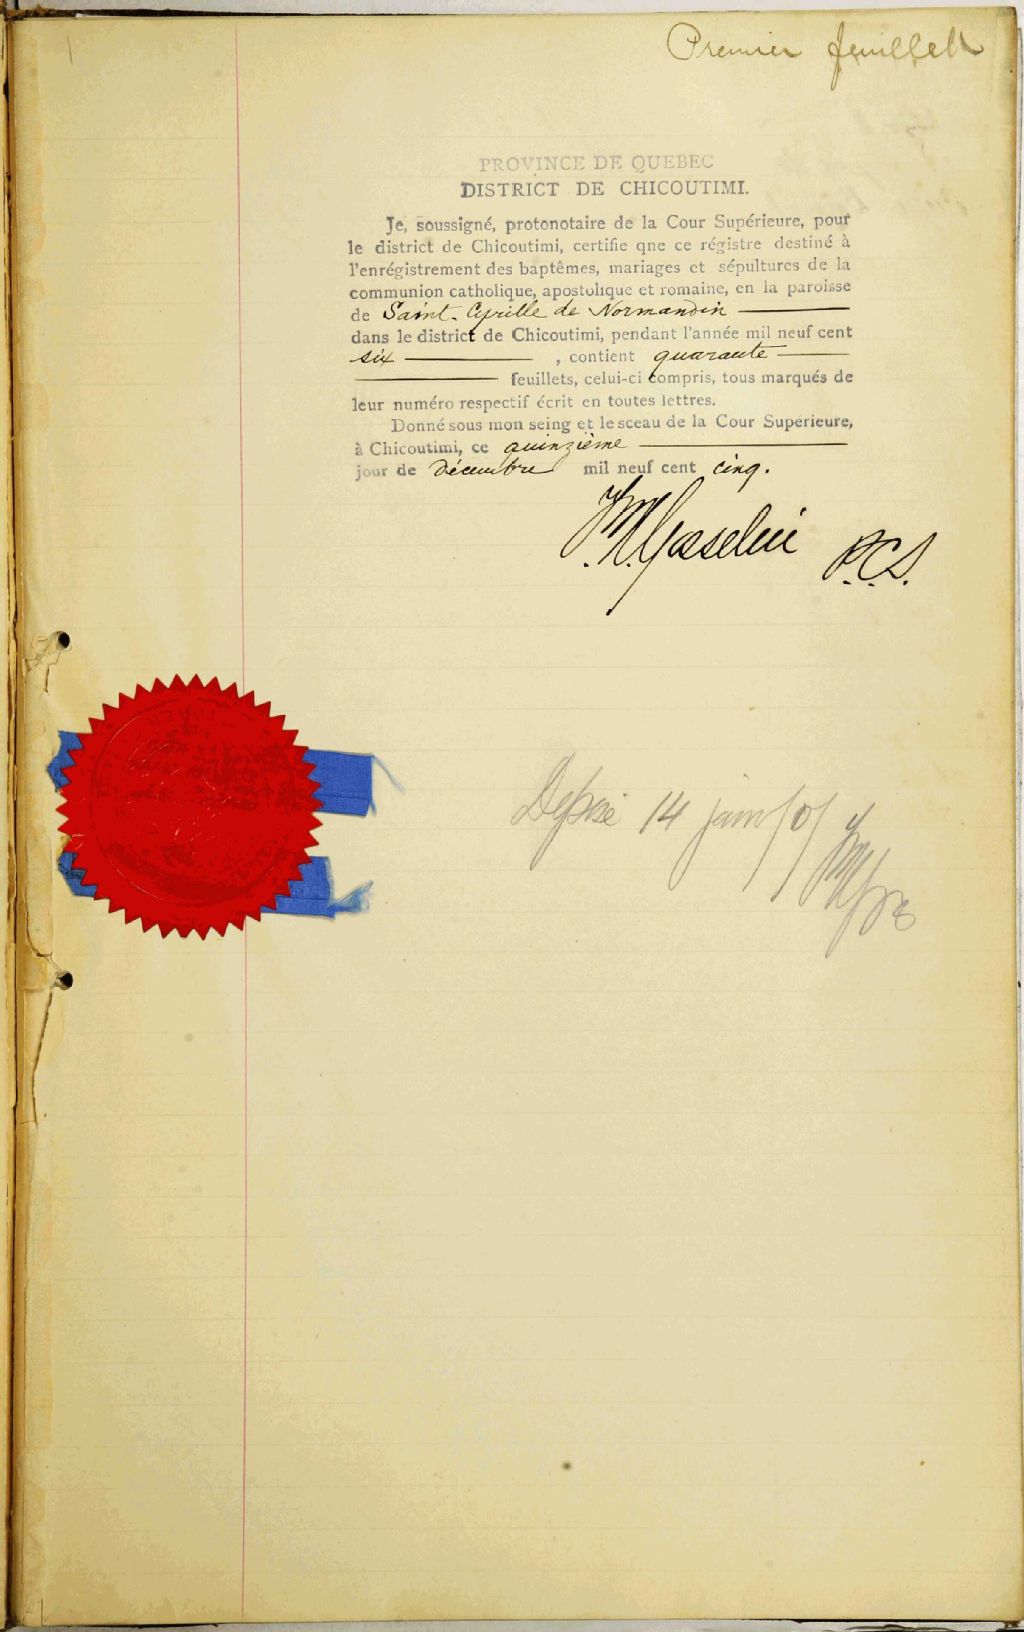 Premier feuillet
PROVINCE DE QUEBEC
DISTRICT DE CHICOUTIMI.
Je, soussigné, protonotaire de la Cour Supérieure, pour
le district de Chicoutimi, certifie qne ce régistre destiné à
l'enrégistrement des baptêmes, mariages et sépultures de la
communion catholique, apostolique et romaine, en la paroisse
de Saint-Cyrille de Normandin
dans le district de Chicoutimi, pendant l'année mil neuf cent
six , contient quarante
feuillets, celui-ci compris, tous marqués de
leur numéro respectif écrit en toutes lettres.
Donné sous mon seing et le sceau de la Cour Supérieure,
à Chicoutimi, ce quinzième
jour de décembre mil neuf cent cinq.
Gosselin P.C.S.
14